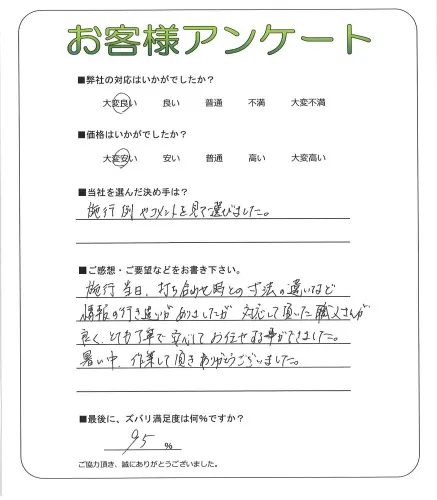 お客様アンケート
■弊社の対応はいかがでしたか?
大変良い 良い 普通 不満 大変不満
■価格はいかがでしたか?
大変安い 安い 普通 高い 大変高い
■当社を選んだ決め手は?
施行例やコメントを見て選びました。
■ご感想・ご要望などをお書き下さい。
施行当日、打ち合わせ時との寸法の違いなど
情報の行き違いがありましたが 対応して頂いた職人さんが
良く、とても丁寧で安心してお任せする事ができました。
暑い中、作業して頂きありがとうございました。
■最後に、ズバリ満足度は何%ですか?
95 %
ご協力頂き、誠にありがとうございました。